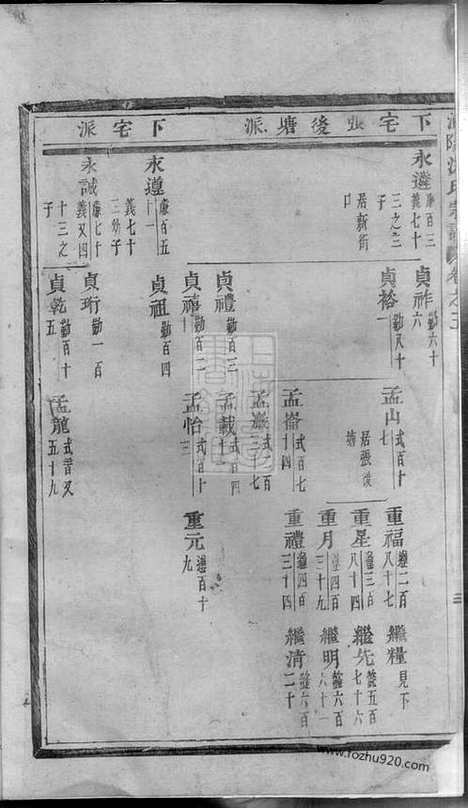 下宅張後塘派
下宅派
永遵 康百三 義七十三之三 居新街口
永遵 康百五十一 義七十三幼子
永誠 康七十 義又四十三之子
貞祚 勤六十六
貞裕 勤又十一
貞禮 勤百三
貞禧 勤百二
貞祖 勤百四
貞珩 勤一百
貞乾 勤百十五
孟山 式百十七 居張後塘
孟崙 式百七十四
孟載
孟怡 式百十三
孟龍 式百又五十九
重福 遜二百八十七
重星 遜三百八十四
重月 遜四百三十九
重禮 遜四百三十四
重元 遜百十九
繼糧 見下
繼先 銓五百七十六
繼明 銓六百六十一
繼清 銓六百二十
www.fozhu920.com